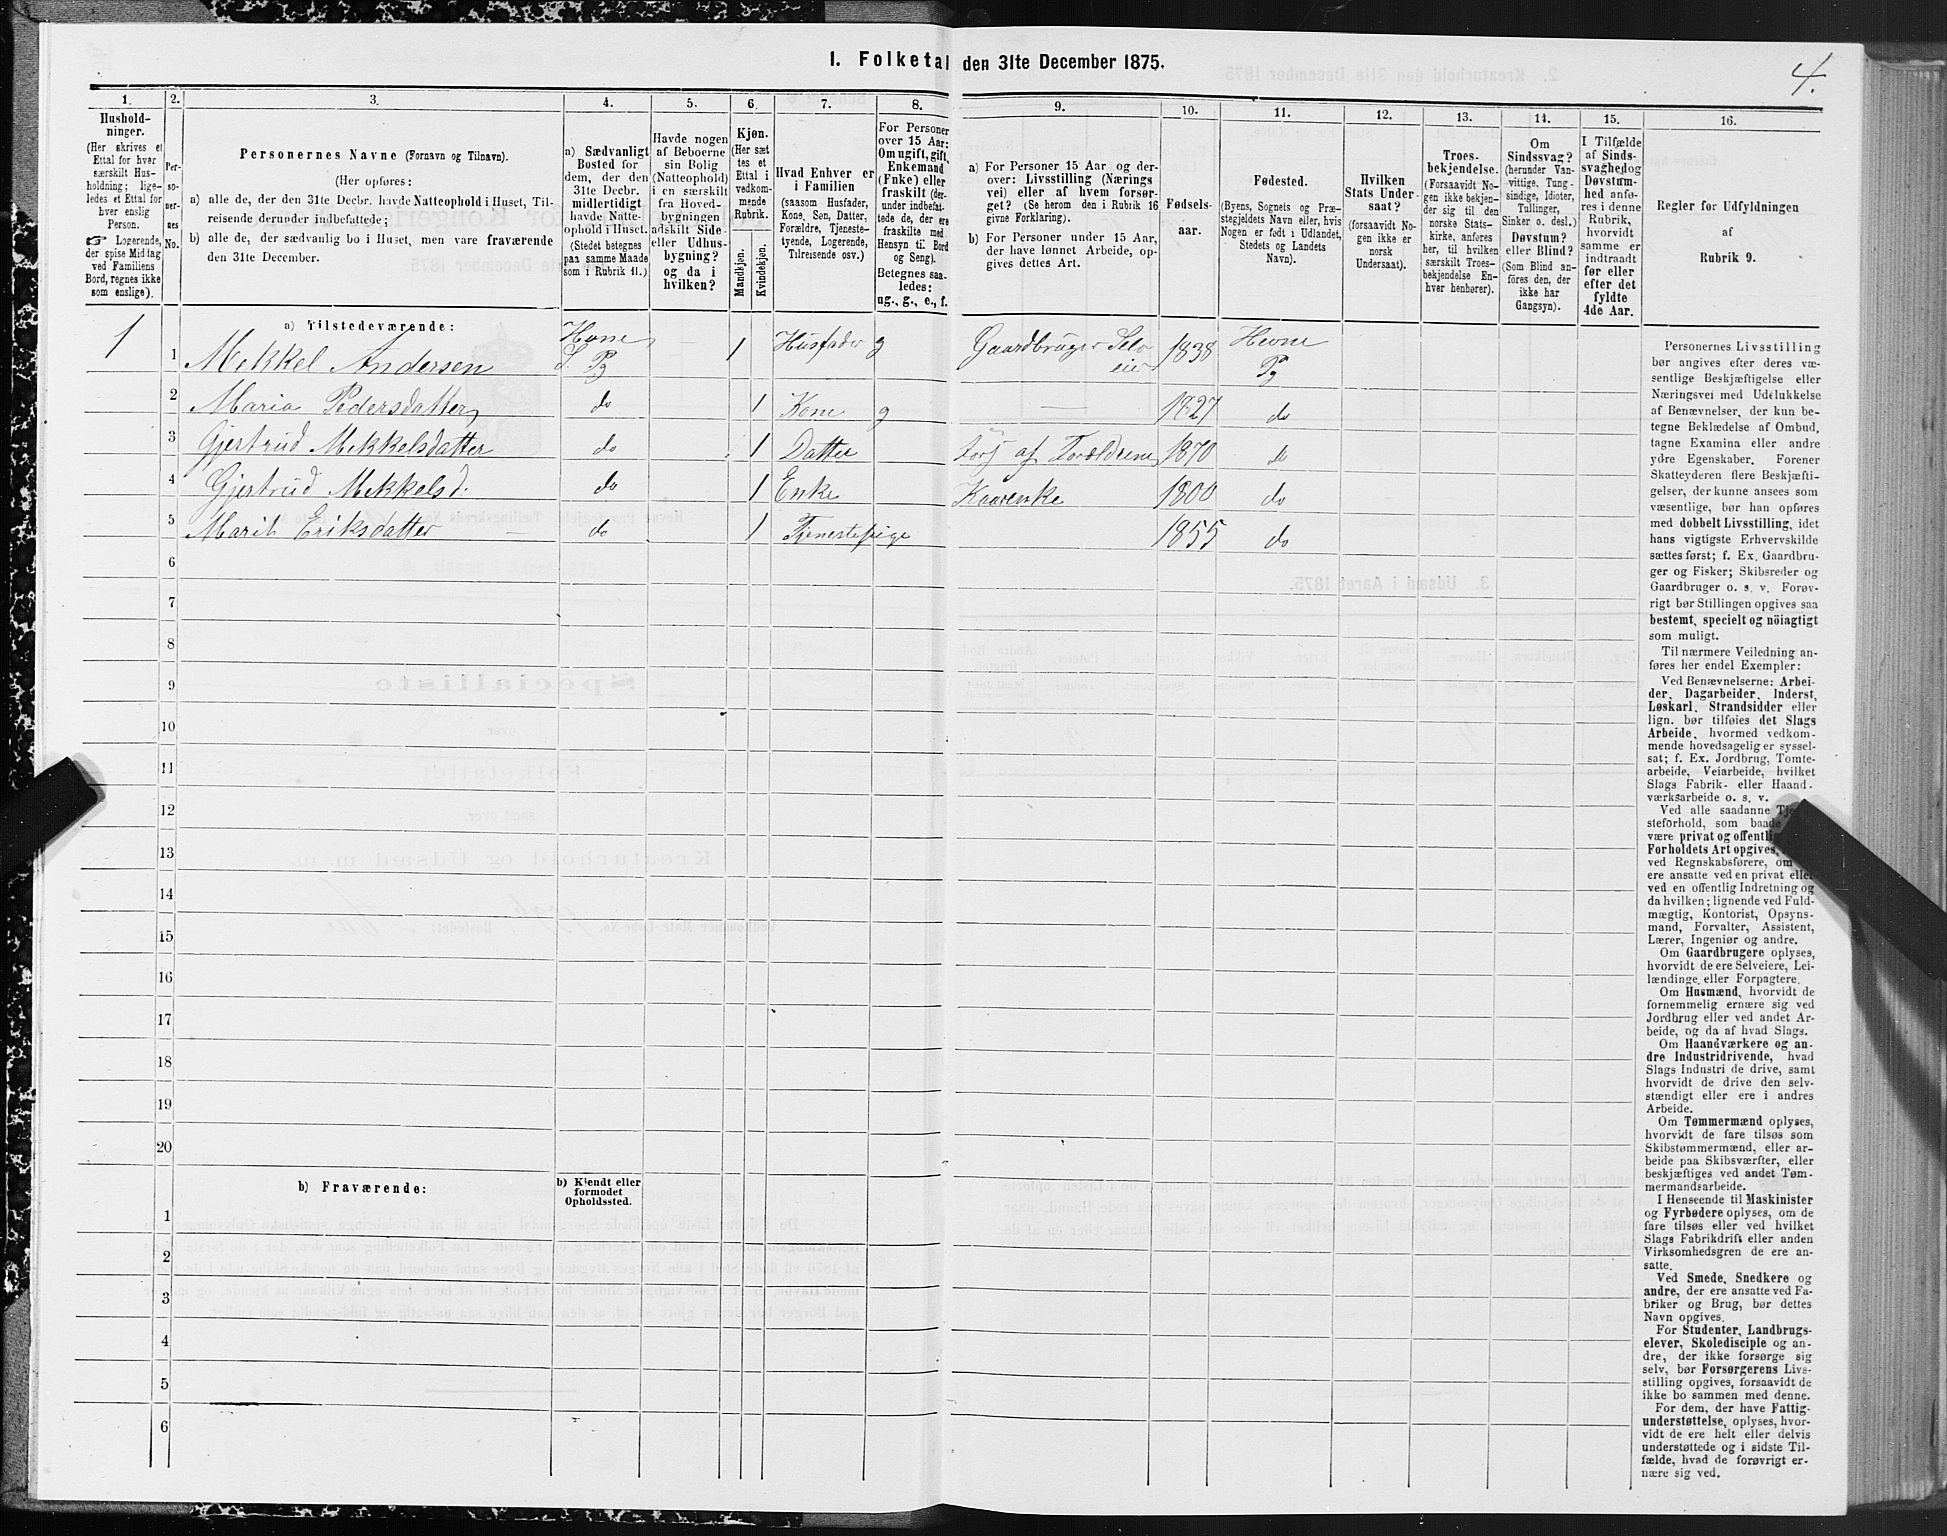 I. Folketal den 31te December 1875.
4.
1.
2.
3.
4.
5.
6.
7.
8.
9.
10.
11.
12.
13.
14.
15.
16.
Hushold-
ninger.
(Her skrives et
Ettal for hver
særskilt Hus-
holdning; lige-
ledes et Ettal for
hver enslig
Person.
☞ Logerende,
der spise Middag
ved Familiens
Bord, regnes ikke
som enslige).
Per-
so-
ner-
nes
No.
Personernes Navne (Fornavn og Tilnavn).
(Her opføres:
a) alle de, der den 31te Decbr. havde Natteophold i Huset, Til-
reisende derunder indbefattede;
b) alle de, der sædvanlig bo i Huset, men vare fraværende
den 31te December.
a) Sædvanligt
Bosted for
dem, der den
31te Decbr.
midlertidigt
havde Natte-
ophold i Huset.
(Stedet betegnes
paa samme Maade
som i Rubrik 11.)
Havde nogen
af Beboerne
sin Bolig
(Natteophold)
i en særskilt
fra Hoved-
bygningen
adskilt Side-
eller Udhus-
bygning?
og da i
hvilken?
Kjøn.
(Her sæt
tes et
Ettal i
vedkom-
mende
Rubrik.
Mandkjøn.
Kvindekjøn.
Hvad Enhver er
i Familien
(saasom Husfader,
Kone, Søn, Datter,
Forældre, Tjeneste-
tyende, Logerende,
Tilreisende osv.)
For Personer
over 15 Aar:
Om ugift, gift,
Enkemand
(Enke) eller
fraskilt (der-
under indbefat-
tede de, der ere
fraskilte med
Hensyn til Bord
og Seng).
Betegnes saa-
ledes:
ug., g., e., f.
a) For Personer 15 Aar og der-
over: Livsstilling (Nærings
vei) eller af hvem forsør-
get? (Se herom den i Rubrik 16
givne Forklaring).
b) For Personer under 15 Aar,
der have lønnet Arbeide, op-
gives dettes Art.
Fødsels-
aar.
Fødested.
(Byens, Sognets og Præ-
stegjeldets Navn eller, hvis
Nogen er født i Udlandet,
Stedets og Landets
Navn).
Hvilken
Stats Under-
saat?
(forsaavidt No-
gen ikke er
norsk
Undersaat).
Troes-
bekjendelse.
(Forsaavidt No-
gen ikke bekjen-
der sig til den
norske Stats-
kirke, anføres
her, til hvilken
særskilt Troes-
bekjendelse En-
hver henhører).
Om
Sindssvag?
(herunder Van-
vittige, Tung-
sindige, Idioter,
Tullinger,
Sinker o. desl.)
Døvstum?
eller Blind?
(Som Blind an-
føres den, der
ikke har
Gangsyn).
I Tilfælde
af Sinds-
svaghed og
Døvstum-
hed anfø-
res i denne
Rubrik,
hvorvidt
samme er
indtraadt
før eller
efter det
fyldte
4de Aar.
Regler for Udfyldningen
af
Rubrik 9.
a) Tilstedeværende:
1 1 Mekkel Andersen Hevne S. Pg — 1 Husfader g Gaardbruger Selveier 1838 Hevne Pg
2 Maria Pedersdatter do 1 Kone g — 1827 do
3 Gjertrud Mekkelsdatter do 1 Datter Fors af Forældrene 1870 do
4 Gjertrud Mekkelsd. do 1 Enke Kaarenke 1800 do
5 Marit Eriksdatter do 1 Tjenestepige 1855 do
6
7
8
9
10
11
12
13
14
15
16
17
18
19
20
b) Fraværende:
b) Kjendt eller
formodet
Opholdssted.
1
2
3
4
5
6
Personernes Livsstilling
bør angives efter deres væ-
sentlige Beskjæftigelse eller
Næringsvei med Udelukkelse
af Benævnelser, der kun be-
tegne Beklædelse af Ombud,
tagne Examina eller andre
ydre Egenskaber. Forener
Skatteyderen flere Beskjæfti-
gelser, der kunne ansees som
væsentlige, bør han opføres
med dobbelt Livsstilling, idet
hans vigtigste Erhvervskilde
sættes først; f. Ex. Gaardbru-
ger og Fisker; Skibsreder og
Gaardbruger o. s. v. Forøv-
rigt bør Stillingen opgives saa
bestemt, specielt og nöiagtigt
som muligt.
Til nærmere Veiledning an-
føres her endel Exempler:
Ved Benævnelserne: Arbei-
der, Dagarbeider, Inderst,
Løskarl, Strandsidder eller
lign. bør tilføies det Slags
Arbeide, hvormed vedkom-
mende hovedsagelig er syssel-
sat; f. Ex. Jordbrug, Tomte-
arbeide, Veiarbeide, hvilket
Slags Fabrik- eller Haand-
værksarbeide o. s. v.
Ved alle saadanne
steforhold, som baade
være privat og
Forholdets Art opgives,
ved Regnskabsførere, om
ere ansatte ved en privat eller
ved en offentlig Indretning og
da hvilken; lignende ved Fuld-
mægtig, Kontorist, Opsyns-
mand, Forvalter, Assistent,
Lærer, Ingeniør og andre.
Om Gaardbrugere oplyses,
hvorvidt de ere Selveiere, Lei-
lændinge eller Forpagtere.
Om Husmænd, hvorvidt de
fornemmelig ernære sig ved
Jordbrug eller ved andet Ar-
beide, og da af hvad Slags.
Om Haandværkere og an-
dre Industridrivende, hvad
Slags Industri de drive, samt
hvorvidt de drive den selv-
stændigt eller ere i andres
Arbeide.
Om Tømmermænd oplyses,
hvorvidt de fare tilsøs som
Skibstømmermænd, eller ar-
beide paa Skibsværfter, eller
beskjæftiges ved andet Tøm-
mermandsarbeide.
I Henseende til Maskinister
og Fyrbødere oplyses, om de
fare tilsøs eller ved hvilket
Slags Fabrikdrift eller anden
Virksomhedsgren de ere an-
satte.
Ved Smede, Snedkere og
andre, der ere ansatte ved Fa-
briker og Brug, bør dettes
Navn opgives.
For Studenter, Landbrugs-
elever, Skoledisciple og an-
dre, der ikke forsørge sig
selv, bør Forsørgerens Livs-
stilling opgives, forsaavidt de
ikke bo sammen med denne.
For dem, der have Fattig-
understøttelse, oplyses, hvor-
vidt de ere helt eller delvis
understøttede og i sidste Til-
fælde, hvad de forøvrigt er-
nære sig ved.